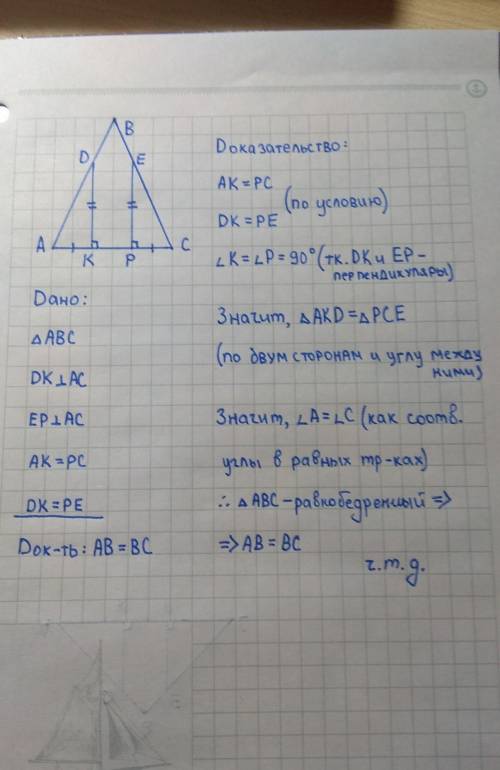 B
D
E
A
K
P
C
Дано:
△ABC
DK⊥AC
EP⊥AC
AK=PC
DK=PE
Док-ть: AB=BC
Доказательство:
AK=PC
(по условию)
DK=PE
∠K=∠P=90° (тк. DK и EP-
перпендикуляры)
Значит, △AKD=△PCE
(по двум сторонам и углу между
ними)
Значит, ∠A=∠C (как соотв.
углы в равных тр-ках)
∴ △ABC-равнобедренный =>
=> AB=BC
ч.т.д.